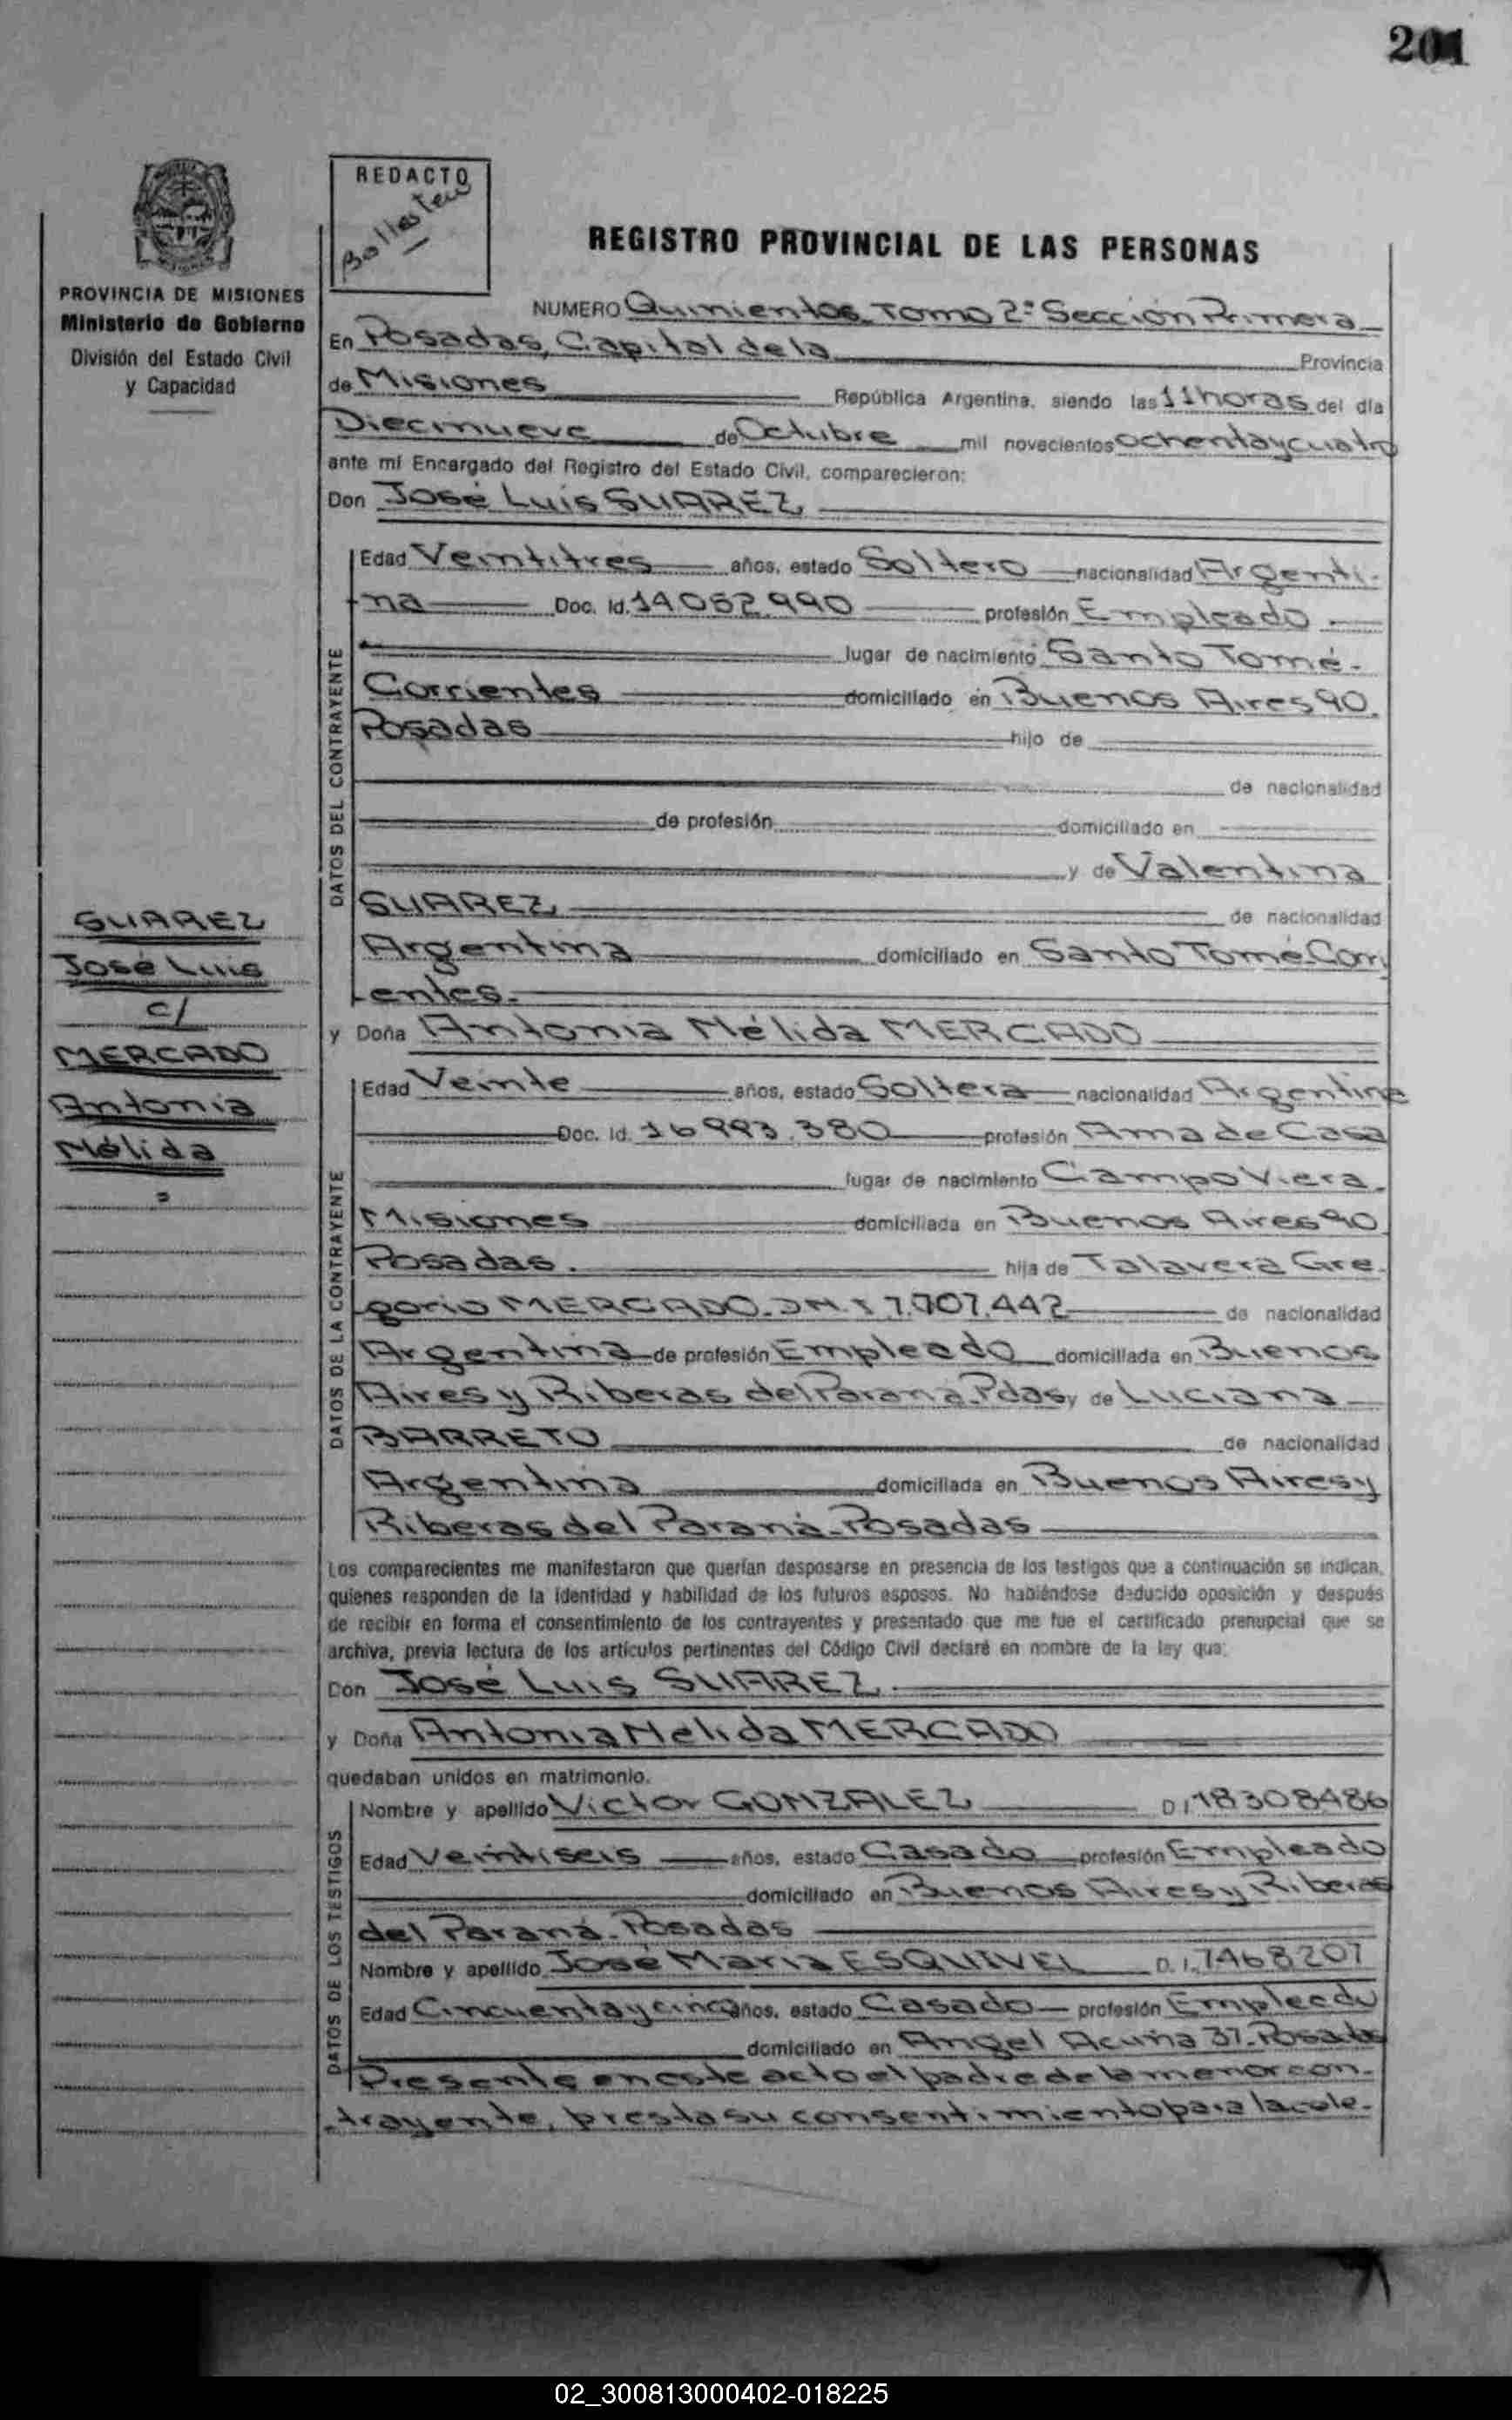 201
REDACTO
REGISTRO PROVINCIAL DE LAS PERSONAS
PROVINCIA DE MISIONES
Ministerio de Gobierno
División del Estado Civil
y Capacidad
NUMERO Quinientos Tomo 2º Sección Primera
En Posadas, Capital de la Provincia
de Misiones República Argentina, siendo las 11 horas del día
Diecinueve de Octubre mil novecientos ochenta y cuatro
ante mí Encargado del Registro del Estado Civil, comparecieron:
Don José Luis SUAREZ
DATOS DEL CONTRAYENTE
Edad Veintitres años, estado Soltero nacionalidad Argenti-
na Doc. Id. 14.052.990 profesión Empleado
lugar de nacimiento Santo Tomé-
Corrientes domiciliado en Buenos Aires 90.
Posadas hijo de
de nacionalidad
de profesión domiciliado en
y de Valentina
SUAREZ de nacionalidad
Argentina domiciliado en Santo Tomé Corri
entes.
SUAREZ
José Luis
c/
MERCADO
Antonia
Nélida
y Doña Antonia Nélida MERCADO
DATOS DE LA CONTRAYENTE
Edad Veinte años, estado Soltera nacionalidad Argentina
Doc. Id. 16.993.380 profesión Ama de Casa
lugar de nacimiento Campo Viera.
Misiones domiciliada en Buenos Aires 90
Posadas. hija de Talavera Gre
gorio MERCADO. 7.707.442 de nacionalidad
Argentina de profesión Empleado domiciliada en Buenos
Aires y Riberas del Parana. Pdas y de Luciana
BARRETO de nacionalidad
Argentina domiciliada en Buenos Aires y
Riberas del Paraná-Posadas
Los comparecientes me manifestaron que querían desposarse en presencia de los testigos que a continuación se indican,
quienes responden de la identidad y habilidad de los futuros esposos. No habiéndose deducido oposición y después
de recibir en forma el consentimiento de los contrayentes y presentado que me fue el certificado prenupcial que se
archiva, previa lectura de los artículos pertinentes del Código Civil declaré en nombre de la ley que:
Don José Luis SUAREZ.
y Doña Antonia Nelida MERCADO
quedaban unidos en matrimonio.
DATOS DE LOS TESTIGOS
Nombre y apellido Victor GONZALEZ D I 18308486
Edad Veintiseis años, estado Casado profesión Empleado
domiciliado en Buenos Aires y Riberas
del Paraná-Posadas
Nombre y apellido José Maria ESQUIVEL D. I. 7468207
Edad Cincuenta y cinco años, estado Casado profesión Empleado
domiciliado en Angel Acuña 37-Posadas
Presente en este acto el padre de la menor con-
trayente, presta su consentimiento para la cele-
02_300813000402-018225